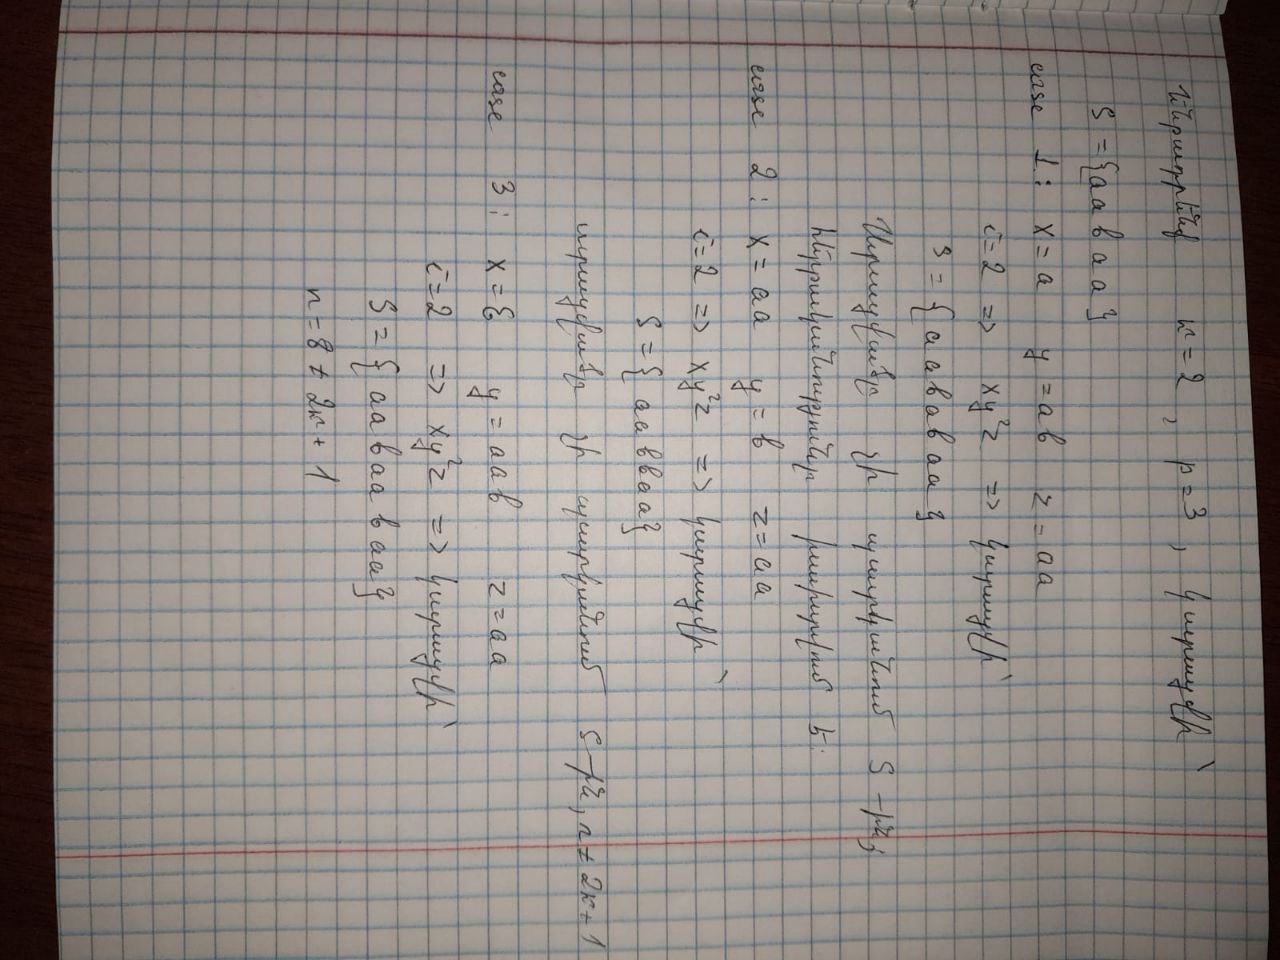 Ենթադրենք k=2 , p=3 , կստացվի՝
S = {aabaa}
case 1: x=a y=ab z=aa
i=2 => xy²z => կստացվի՝
S = {aababaa}
Ստացվածը չի պատկանում S-ին,
հերքականությունը խախտվում է:
case 2: x=aa y=b z=aa
i=2 => xy²z => կստացվի՝
S = {aabbaa}
ստացվածը չի պատկանում S-ին, n≠2k+1
case 3: x=ε y=aab z=aa
i=2 => xy²z => կստացվի՝
S = {aabaabaa}
n=8≠2k+1